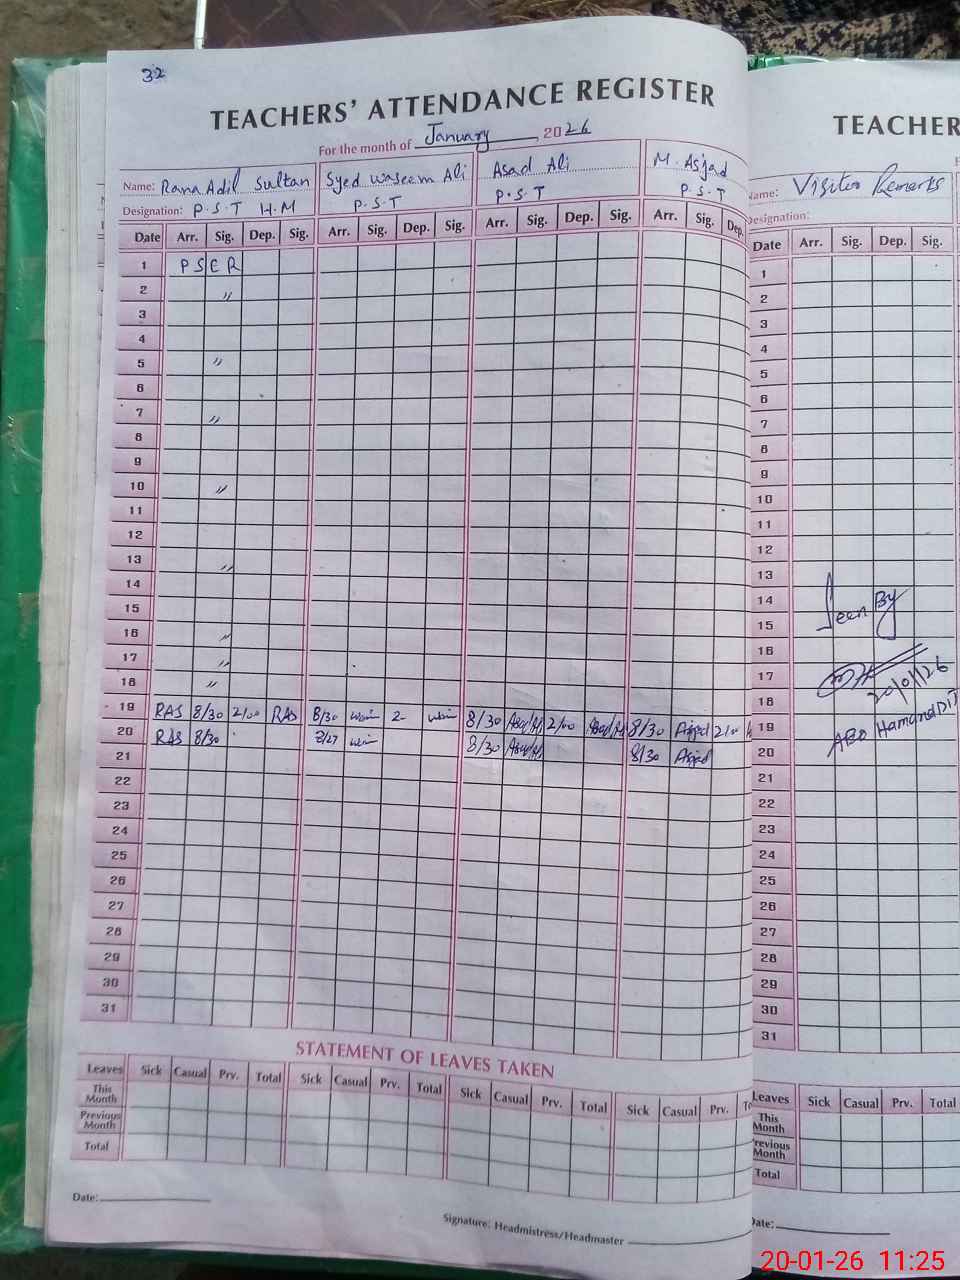 32
TEACHERS' ATTENDANCE REGISTER
For the month of January, 2026
Name: Rana Adil Sultan Syed Waseem Ali Asad Ali M. Asjad
Designation: P.S.T H.M P.S.T P.S.T P.S.T
Date Arr. Sig. Dep. Sig. Arr. Sig. Dep. Sig. Arr. Sig. Dep. Sig. Arr. Sig. Dep.
1 PSER
2 "
3
4
5 "
6
7 "
8
9
10 "
11
12
13 "
14
15
16 "
17 "
18 "
19 RAS 8/30 2/00 RAS 8/30 2- 8/30 2/00 8/30 Asjad 2/00
20 RAS 8/30 8/27 8/30 8/30 Asjad
21
22
23
24
25
26
27
28
29
30
31
STATEMENT OF LEAVES TAKEN
Leaves Sick Casual Prv. Total Sick Casual Prv. Total Sick Casual Prv. Total Sick Casual Prv.
This Month
Previous Month
Total
Date:
Signature: Headmistress/Headmaster
TEACHER
Name: Visitor Remarks
Designation:
Date Arr. Sig. Dep. Sig.
1
2
3
4
5
6
7
8
9
10
11
12
13
14 Seen By
15
16
17 20/01/26
18
19
20
21
22
23
24
25
26
27
28
29
30
31
Leaves Sick Casual Prv. Total
This Month
Previous Month
Total
Date:
20-01-26 11:25